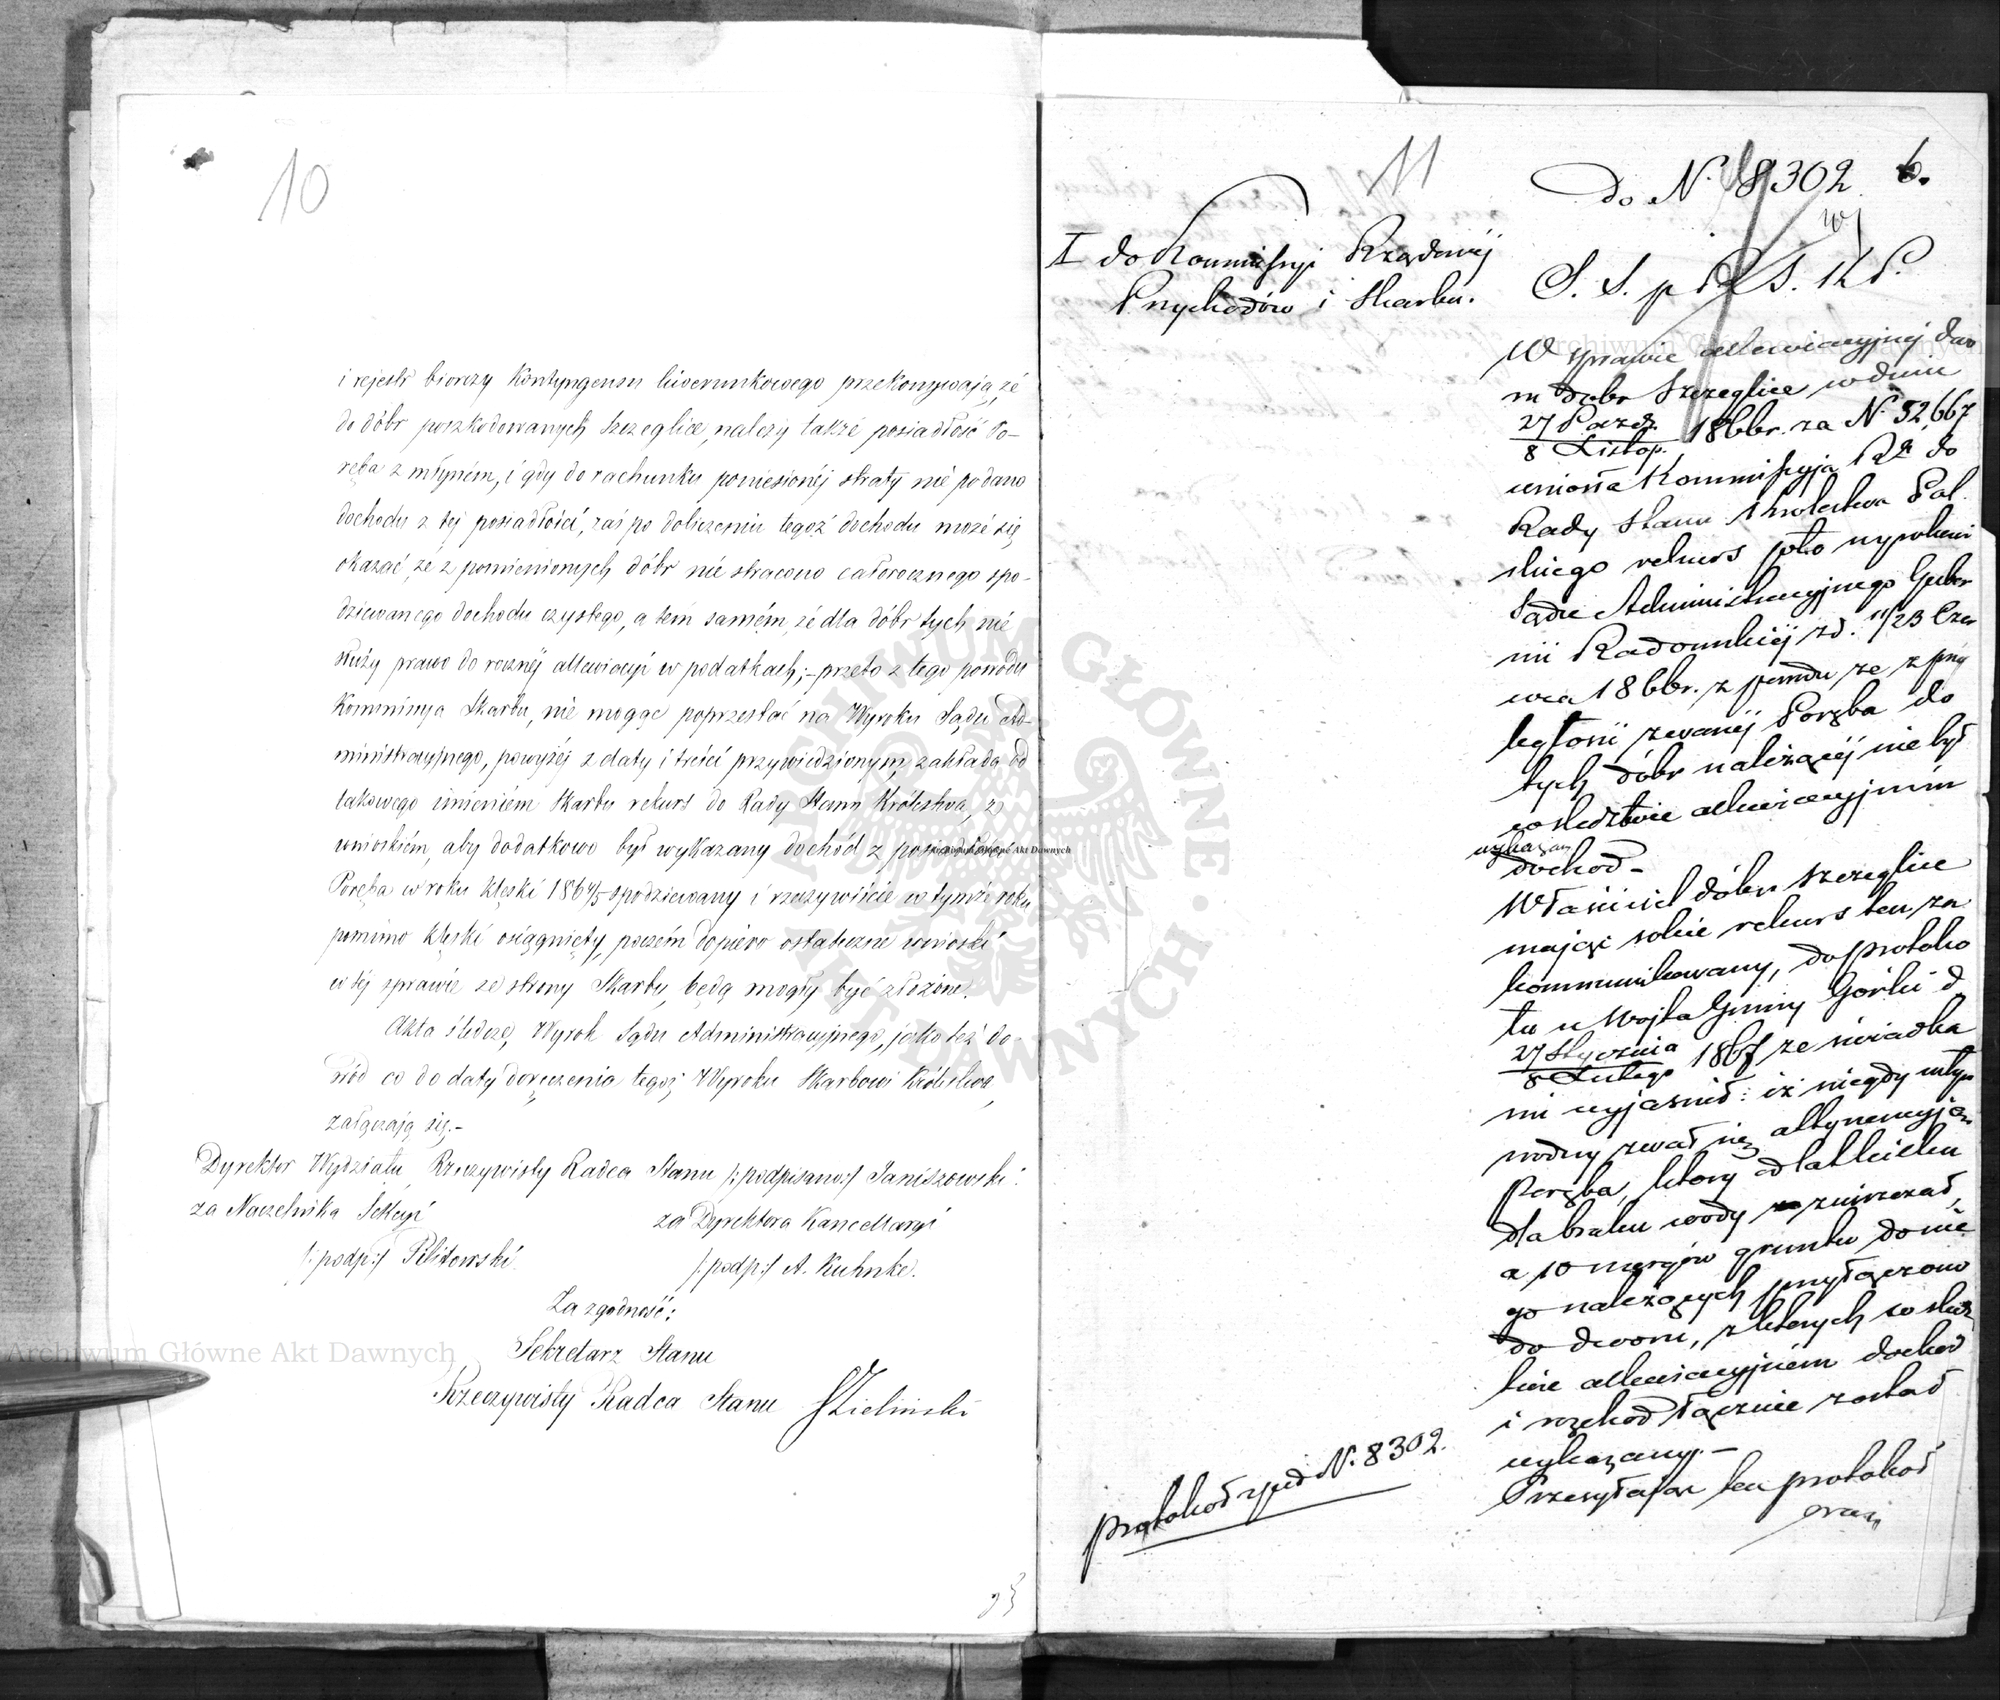 10
i rejestr biorczy Kontyngensu liwerunkowego przekonywają, że
do dóbr poszkodowanych Szczeglice, należy także posiadłość Po-
ręba z młynem, i gdy do rachunku poniesionéj straty nie podano
dochodu z téj posiadłości, zaś po doliczeniu tegoż dochodu może się
okazać, że z pomienionych dóbr nie stracono całorocznego spo-
dziewanego dochodu czystego, a tem samém, że dla dóbr tych nie
służy prawo do rocznéj allewiacyi w podatkach; - przeto z tego powodu
Kommissya Skarbu, nie mogąc poprzestać na Wyroku Sądu Ad-
ministracyjnego, powyżéj z daty i treści przywiedzionym, zakłada od
takowego imieniem Skarbu rekurs do Rady Stanu Królestwa, z
wnioskiem, aby dodatkowo był wykazany dochód z posiadłości
Poręba w roku klęski 1864/5 spodziewany i rzeczywiście w tymże roku
pomimo klęski osiągnięty, poczém dopiero ostateczne wnioski
w téj sprawie ze strony Skarbu, będą mogły być złożone.
Akta śledcze, Wyrok Sądu Administracyjnego, jako też do-
wód co do daty doręczenia tegoż Wyroku Skarbowi Królestwa,
załączają się.-
Dyrektor Wydziału, Rzeczywisty Radca Stanu /:podpisano:/ Janiszowski.
za Naczelnika Sekcyi
za Dyrektora Kancellaryi
/:podp:/ Pilitowski.
/:podp:/ A. Kuhnke.
Za zgodność:
Sekretarz Stanu
Rzeczywisty Radca Stanu JZieliński
11
do N. 8302 6.
I do Kommissyi Rządowéj
Przychodów i Skarbu.
W sprawie allewiacyjnej daw
m dobr Szczeglice w dniu
27 Paźdz.
8 Listop. 1866r. za N 52,667
wniosła Kommissyja Rz. do
Rady Stanu Królestwa Pol
skiego rekurs pko wyrokowi
Sądu Administracyjnego Guber
nii Radomskiéj z d. 11/23 Czer
wca 1866r. z powodu że z przy
ległości zwanéj Poręba do
tych dóbr należącéj nie był
w śledztwie allewiacyjném
wykazan
dochod -
Właściciel dóbr Szczeglice
mając sobie rekurs ten za
kommunikowany, do protoko
łu u Wojta Gminy Górki d.
27 Stycznia
8 Lutego 1867 ze świadka
mi wyjaśnił: iż niegdy młyn
wodny zwał się attynencyją
Poręba, ktory od lat kilku
dla braku wody zniszczał,
a 10 morgów gruntu do nie
go należących przyłączono
do dworu, z ktorych w śledz
twie allewiacyjném dochod
i rozchod łącznie został
wykazany. -
Przesyłając ten protokół
oraz
protokoł pod N. 8302.
Archiwum Główne Akt Dawnych
ARCHIWUM GŁÓWNE AKT DAWNYCH